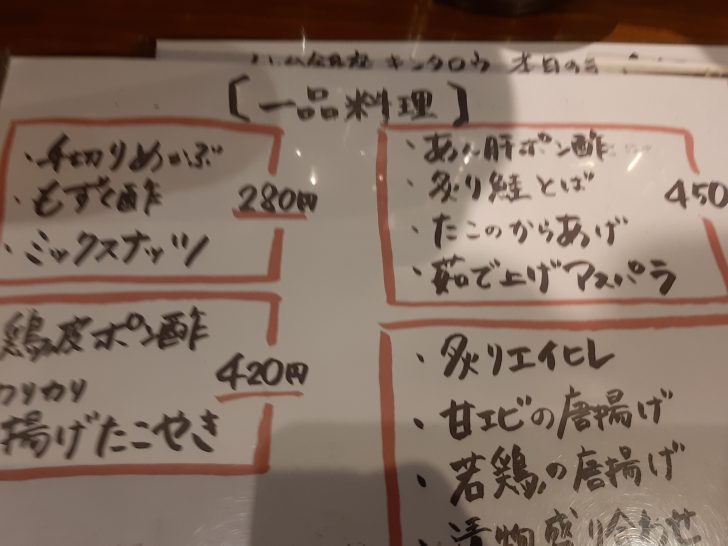 キンクロウ 本日の
〔一品料理〕
・千切りめかぶ
・もずく酢
・ミックスナッツ
280円
鶏皮ポン酢
カリカリ
揚げたこやき
420円
・あん肝ポン酢
・炙り鮭とば
・たこのからあげ
・茹で上げアスパラ
450
・炙りエイヒレ
・甘エビの唐揚げ
・若鶏の唐揚げ
・漬物盛り合わせ